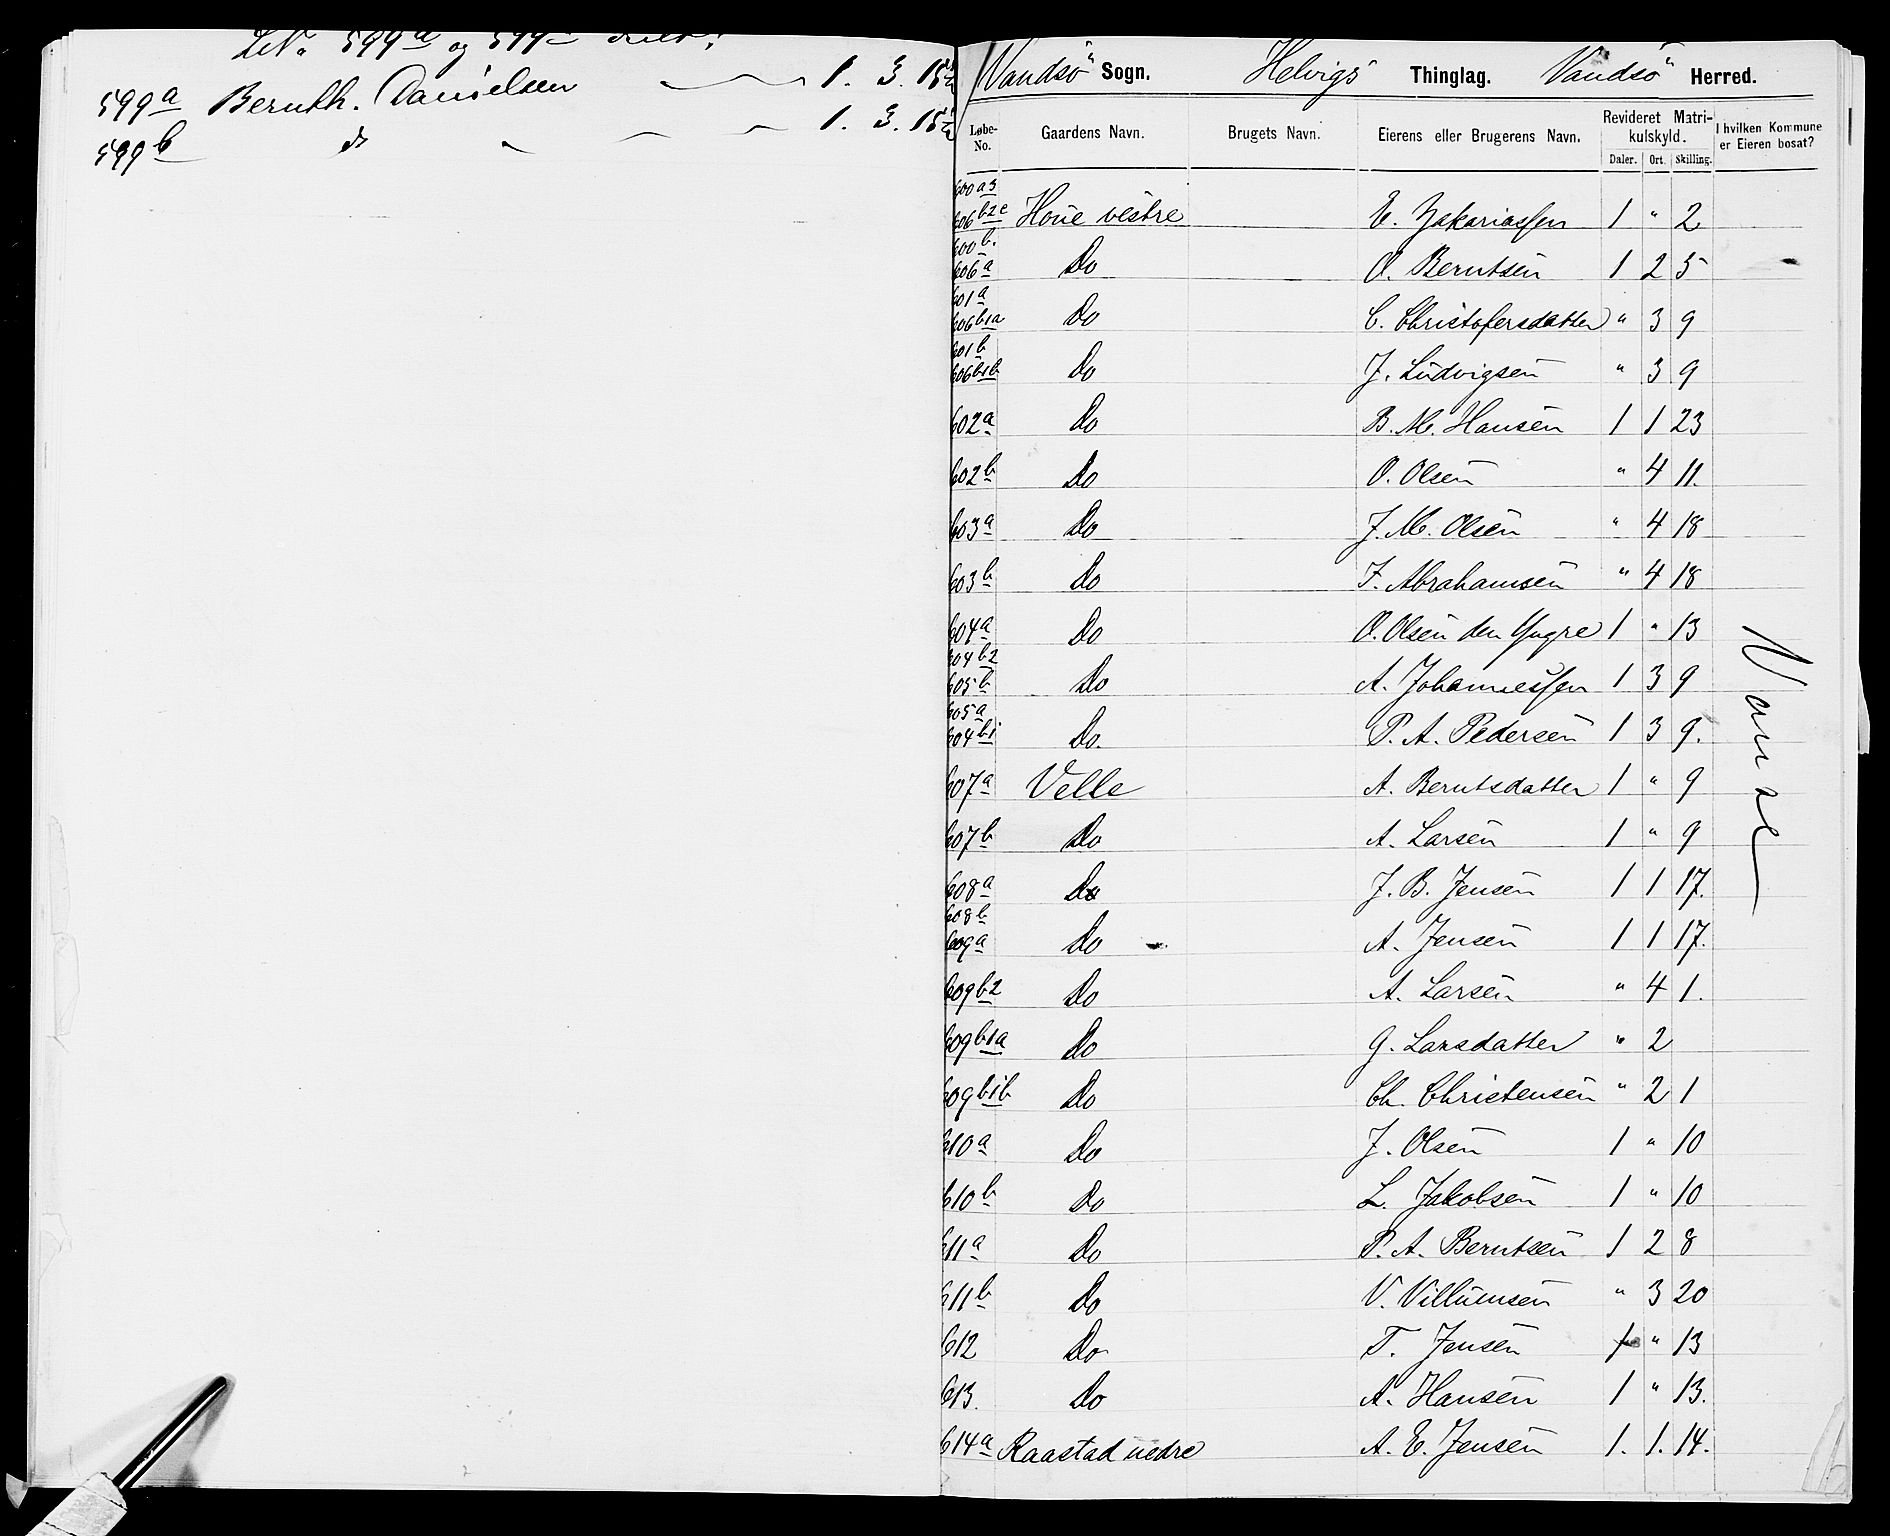 599a og
599a Bernth. Danielsen 1. 3. 15½
599b do 1. 3. 15½
Vandsö Sogn. Helvigs Thinglag. Vandsö Herred.
Løbe-No. Gaardens Navn. Brugets Navn. Eierens eller Brugerens Navn. Revideret Matrikulskyld. Daler. Ort. Skilling. I hvilken Kommune er Eieren bosat?
600a3
606b2c Houe vestre E. Zakariassen 1 " 2
600b.
606a Do O. Berntsen 1 2 5
601a
606b1a Do C. Christofersdatter " 3 9
601b
606b1b Do J. Ludvigsen " 3 9
602a Do B. M. Hansen 1 1 23
602b Do O. Olsen " 4 11.
603a Do J. M. Olsen " 4 18
603b Do F. Abrahamsen " 4 18
604a Do O. Olsen den Yngre 1 " 13
604b2
605b Do A. Johannessen 1 3 9
605a
604b1 Do. P. A. Pedersen 1 3 9.
607a Velle A. Berntsdatter 1 " 9
607b Do A. Larsen 1 " 9
608a Do J. B. Jensen 1 1 17.
608b
609a Do A. Jensen 1 1 17.
609b2 Do A. Larsen " 4 1.
609b1a Do G. Larsdatter " 2
609b1b Do Ch. Christensen " 2 1
610a Do J. Olsen 1 " 10
610b Do L. Jakobsen 1 " 10
611a Do P. A. Berntsen 1 2 8
611b Do V. Villumsen " 3 20
612 Do T. Jensen 1 " 13
613. Do A. Hansen 1 " 13.
614a Raastad nedre A. E. Jensen 1. 1. 14.
Vanse